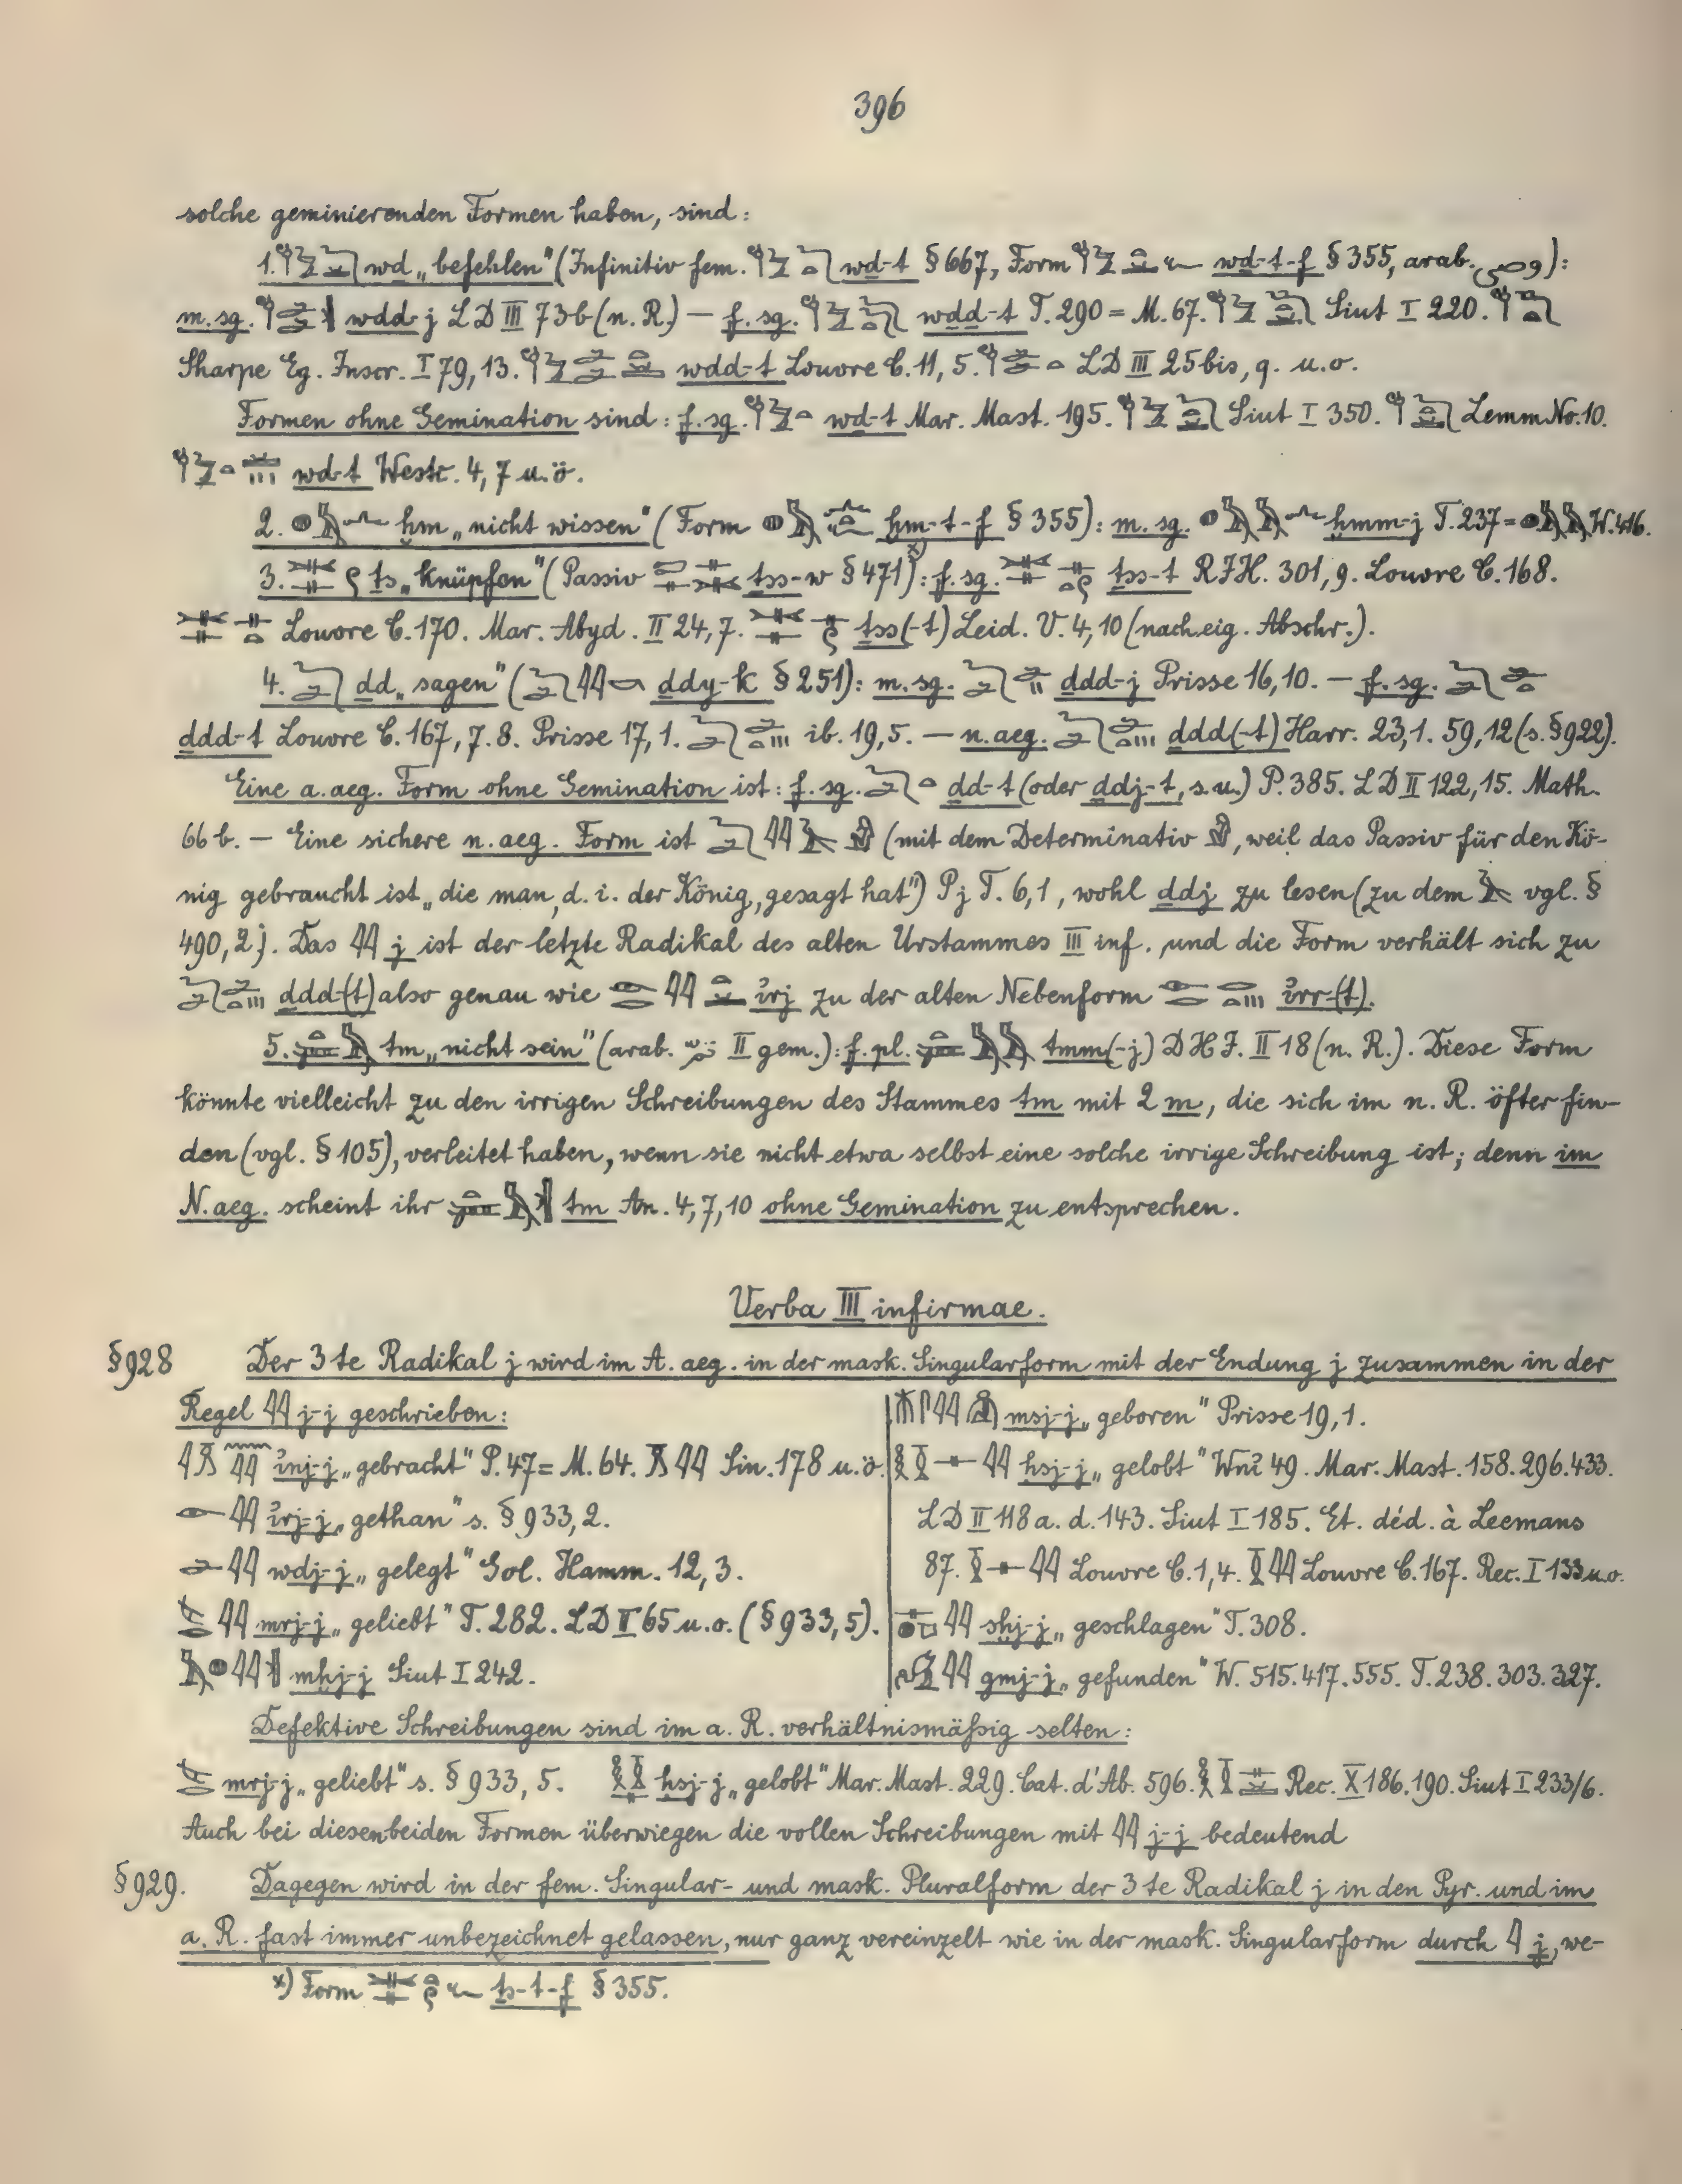 396
solche geminierenden Formen haben, sind:
1. wḏ „befehlen" (Infinitiv fem. wḏ-t § 667, Form wḏ-t-f § 355, arab. ):
m. sg. wḏḏ-j LD III 73b (n. R.) — f. sg. wḏḏ-t T. 290 = M. 67. Siut I 220.
Sharpe Eg. Inscr. I 79, 13. wḏḏ-t Louvre C. 11, 5. LD III 25bis, q. u. o.
Formen ohne Gemination sind: f. sg. wḏ-t Mar. Mast. 195. Siut I 350. Lemm No. 10.
wḏ-t Westc. 4, 7 u. ö.
2. ḫm „nicht wissen" (Form ḫm-t-f § 355): m. sg. ḫmm-j T. 237 = W. 416.
3. ṯs „knüpfen" (Passiv ṯss-w § 471)ˣ⁾: f. sg. ṯss-t RJH. 301, 9. Louvre C. 168.
Louvre C. 170. Mar. Abyd. II 24, 7. ṯss(-t) Leid. V. 4, 10 (nach eig. Abschr.).
4. ḏd „sagen" ( ḏdy-k § 251): m. sg. ḏdd-j Prisse 16, 10. — f. sg.
ḏdd-t Louvre C. 167, 7. 8. Prisse 17, 1. ib. 19, 5. — n. aeg. ḏdd(-t) Harr. 23, 1. 59, 12 (s. § 922).
Eine a. aeg. Form ohne Gemination ist: f. sg. ḏd-t (oder ḏdj-t, s. u.) P. 385. LD II 122, 15. Math.
66 b. — Eine sichere n. aeg. Form ist (mit dem Determinativ , weil das Passiv für den Kö-
nig gebraucht ist „die man, d. i. der König, gesagt hat") Pj T. 6, 1, wohl ḏdj zu lesen (zu dem vgl. §
490, 2). Das 𓇌 j ist der letzte Radikal des alten Urstammes III inf. und die Form verhält sich zu
ḏdd-(t) also genau wie i̓rj zu der alten Nebenform i̓rr-(t).
5. tm „nicht sein" (arab. II gem.): f. pl. tmm(-j) DHJ. II 18 (n. R.). Diese Form
könnte vielleicht zu den irrigen Schreibungen des Stammes tm mit 2 m, die sich im n. R. öfter fin-
den (vgl. § 105), verleitet haben, wenn sie nicht etwa selbst eine solche irrige Schreibung ist; denn im
N. aeg. scheint ihr tm An. 4, 7, 10 ohne Gemination zu entsprechen.
Verba III infirmae.
§ 928 Der 3te Radikal j wird im A. aeg. in der mask. Singularform mit der Endung j zusammen in der
Regel 𓇌 j-j geschrieben:
i̓nj-j „gebracht" P. 47 = M. 64. Sin. 178 u. ö.
i̓rj-j „gethan" s. § 933, 2.
wdj-j „gelegt" Gol. Hamm. 12, 3.
mrj-j „geliebt" T. 282. LD II 65 u. o. (§ 933, 5).
mḥj-j Siut I 242.
msj-j „geboren" Prisse 19, 1.
ḥsj-j „gelobt" Wni̓ 49. Mar. Mast. 158. 296. 433.
LD II 118 a. d. 143. Siut I 185. Et. déd. à Leemans
87. Louvre C. 1, 4. Louvre C. 167. Rec. I 133 u. o.
sḫj-j „geschlagen" T. 308.
gmj-j „gefunden" W. 515. 417. 555. T. 238. 303. 327.
Defektive Schreibungen sind im a. R. verhältnismäßig selten:
mrj-j „geliebt" s. § 933, 5. ḥsj-j „gelobt" Mar. Mast. 229. Cat. d'Ab. 596. Rec. X 186. 190. Siut I 233/6.
Auch bei diesen beiden Formen überwiegen die vollen Schreibungen mit 𓇌 j-j bedeutend
§ 929. Dagegen wird in der fem. Singular- und mask. Pluralform der 3te Radikal j in den Pyr. und im
a. R. fast immer unbezeichnet gelassen, nur ganz vereinzelt wie in der mask. Singularform durch 𓇋 j, we-
x) Form ṯs-t-f § 355.